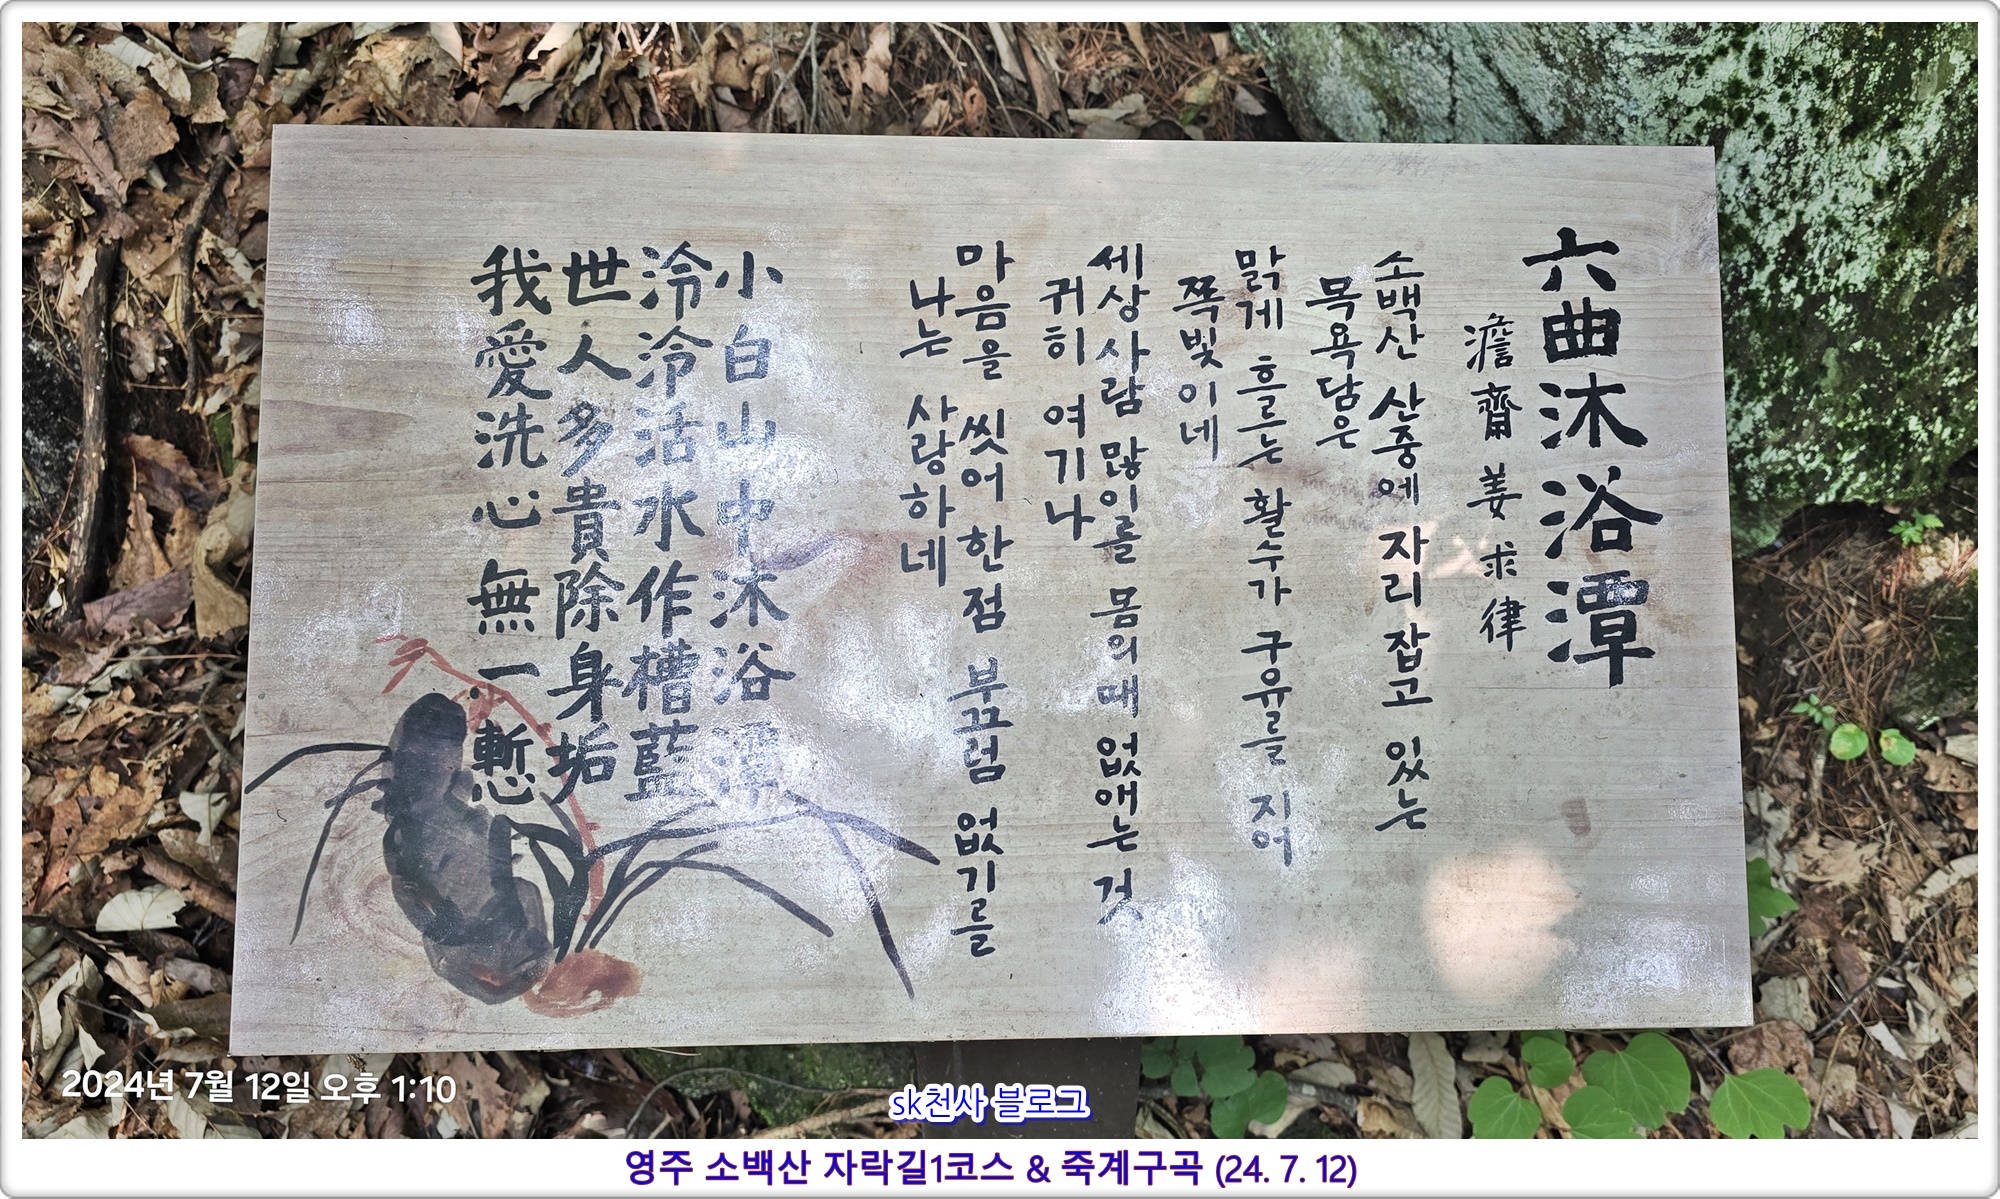 六曲沐浴潭
澹齋 姜求律
소백산 산중에 자리 잡고 있는
목욕담은
맑게 흐르는 활수가 구유를 지어
쪽빛이네
세상 사람 많이들 몸의 때 없애는 것
귀히 여기나
마음을 씻어 한 점 부끄럼 없기를
나는 사랑하네
小白山中沐浴潭
泠泠活水作槽藍
世人多貴除身垢
我愛洗心無一慙
2024년 7월 12일 오후 1:10
sk천사 블로그
영주 소백산 자락길1코스 & 죽계구곡 (24. 7. 12)